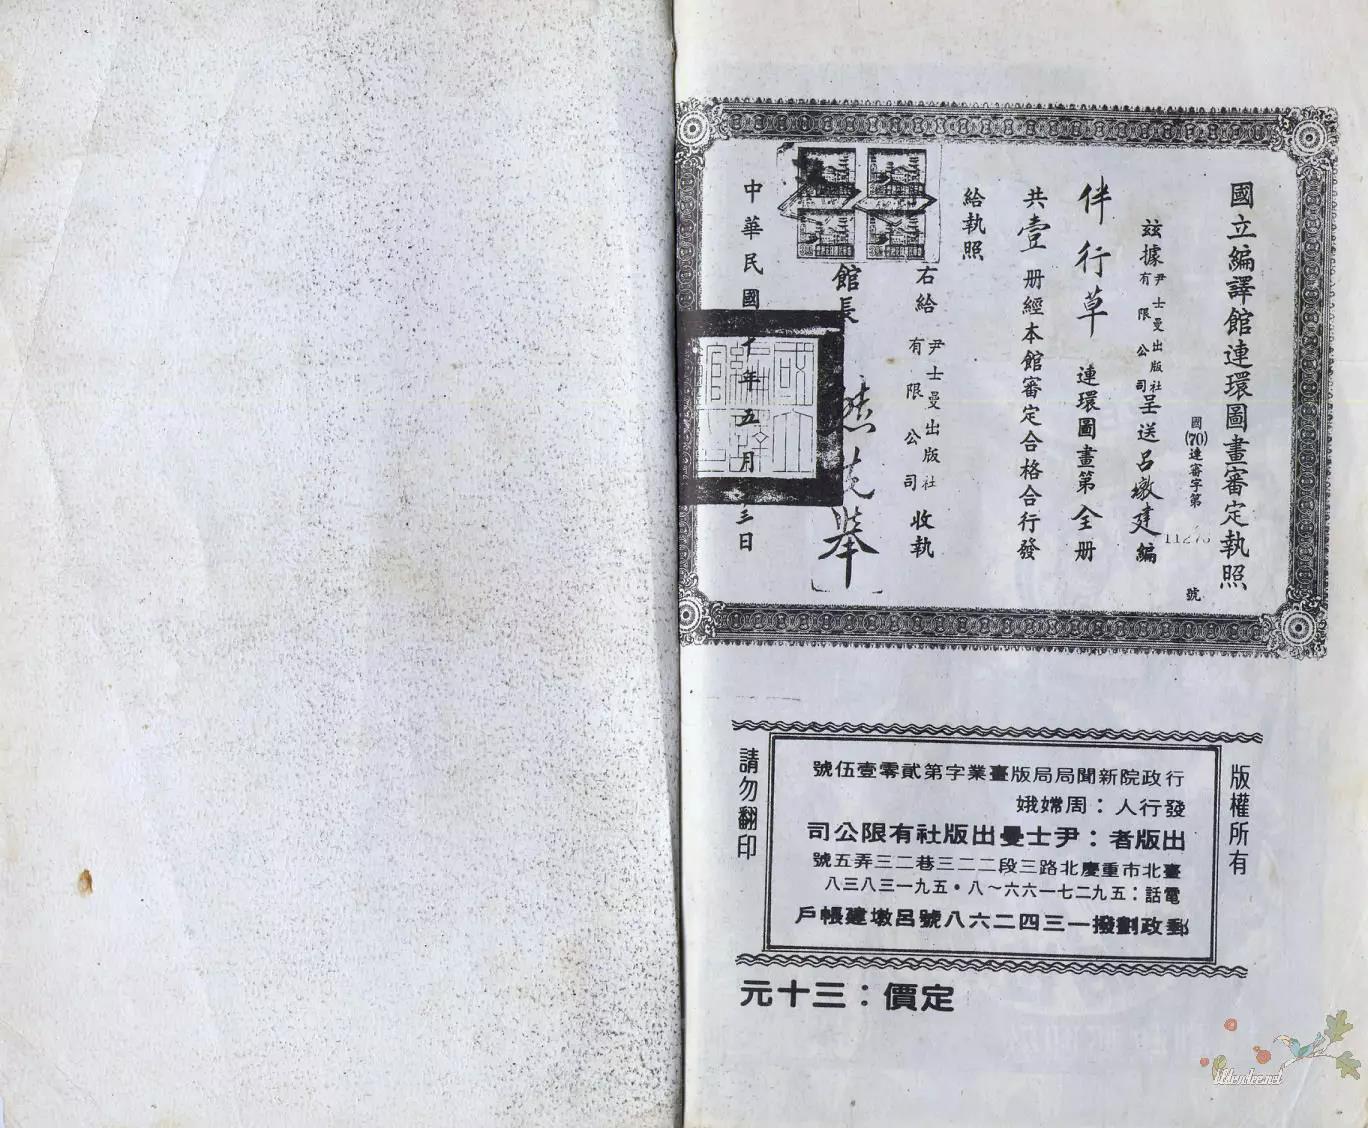 國立編譯館連環圖畫審定執照
國(70)連審字第 號
茲據尹士曼出版社有限公司呈送呂墩建編
伴行草 連環圖畫第全册
共壹册經本館審定合格合行發
給執照
右給尹士曼出版社有限公司收執
館長
中華民國 十年五月 三日
版權所有
行政院新聞局局版臺業字第貳零壹伍號
發行人：周嫦娥
出版者：尹士曼出版社有限公司
臺北市重慶北路三段二二三巷二三弄五號
電話：五九二七一六六～八・五九一三八三八
郵政劃撥一三四二六八號呂墩建帳戶
請勿翻印
定價：三十元